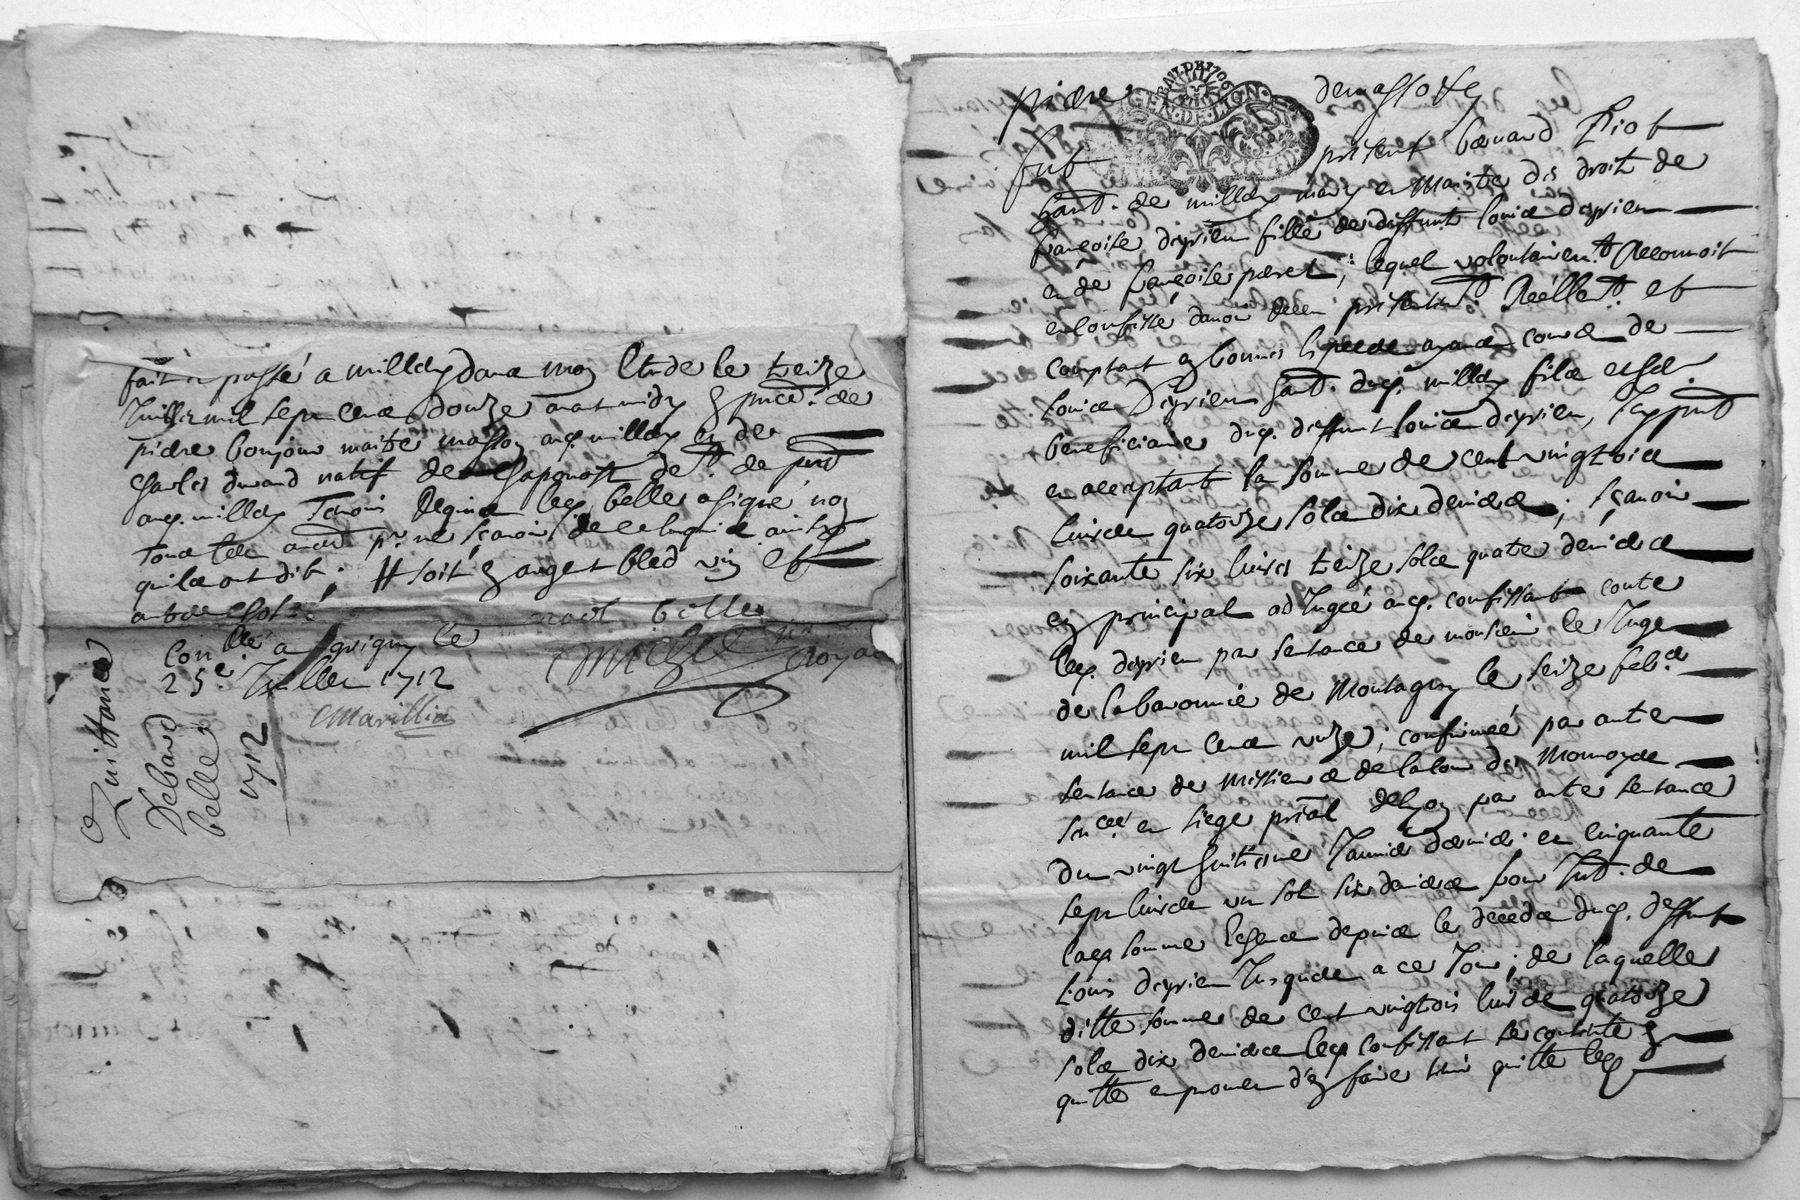 fait et passé a millery dans mon Etude le treize
Juillet mil sept cens douze avant midy en pnce. de
pierre bonjour maitre masson aud. millery et de
charles durand natif de chaponost de
aud. millery Temoins Requis led. belle a signé non
pr. ne sçavoir de ce Enquis ainsy
qu'ils ont dit. # soit en argent bled vin et
autre chose
Conllé a grigny le
25e. Juillet 1712
Marillia
Quittance
belle
1712
GEN. DE LYON
fut present bernard Riot
habt. de millery mary et Maistre des droit de
françoise deyrieu fille de deffunt Louis deyrieu
et de françoise peret, lequel volontairemt. Reconnoit
et confesse d'avoir receu presentemt. Reellemt. et
comptant en bonnes Espece ayans cours de
Louis Deyrieu habt. dud. millery fils et
beneficiaire dud. deffunt Louis deyrieu, Icy pnt.
et acceptant la somme de cent vingt trois
livres quatorze sols dix deniers; sçavoir
soixante six livres treize sols quatre deniers
en principal adjugée aud. confessant contre
led. deyrieu par sentence de monsieur le Juge
de la baronnie de Montagny le seize feb.
mil sept cens unze; confirmée par autre
sentence de messieurs de la Cour des Monnoyes
Snceé. et siege prsal de Lyon par autre sentence
du vingt huitieme Janvier dernier; et cinquante
sept livres un sol six deniers pour Int. de
lad. somme Echeus depuis le deceds dud. deffunt
Louis deyrieu Jusques a ce Jour; de laquelle
ditte somme de cent vingt trois livres quatorze
sols dix deniers led. confessant se contente en
quitte et promet d'en faire tenir quitte led.